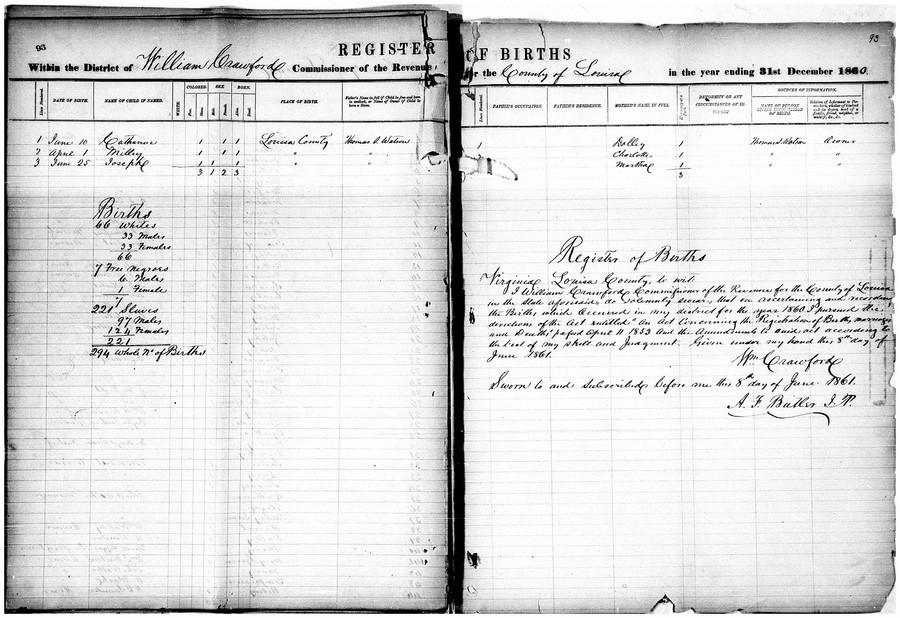 93
REGISTER
Within the District of William Crawford Commissioner of the Revenue
DATE OF BIRTH. NAME OF CHILD IF NAMED. WHITE. COLORED. Free. Slave. SEX Male. Female. BORN. Alive. Dead. PLACE OF BIRTH. Father's Name in full if Child be free and born in wedlock, or Name of Owner if Child be born a Slave.
1 June 10 Catharine 1 1 1 Louisa County Thomas S. Watson
2 April 1 Milley 1 1 1 " "
3 June 25 Joseph 1 1 1 " "
3 1 2 3
Births
66 Whites
33 Males
33 Females
66
7 Free Negroes
6 Males
1 Female
7
221 Slaves
97 Males
124 Females
221
294 Whole No of Births
93
OF BIRTHS
for the County of Louisa in the year ending 31st December 1860.
FATHER'S OCCUPATION. FATHER'S RESIDENCE. MOTHER'S NAME IN FULL. DEFORMITY OR ANY CIRCUMSTANCES OF INTEREST SOURCES OF INFORMATION. NAME OF PERSON GIVING INFORMATION OF BIRTH.
1 Dolley 1 Thomas S Watson Owner
Charlotte 1 " "
Martha 1 " "
3
Register of Births
Virginia Louisa County, to wit:
I William Crawford Commissioner of the Revenue for the County of Louisa
in the State aforesaid, do solemnly swear, that in ascertaining and recording
the Births, which occurred in my district for the year 1860 I pursued the
directions of the Act entitled "An Act Concerning the Registration of Births, marriages
and Deaths" passed April 11 1853 and the Amendment to said act according to
the best of my skill and Judgment. Given under my hand this 8th day of
June 1861.
Wm Crawford
Sworn to and subscribed before me this 8th day of June 1861.
A. F. Butler J. P.